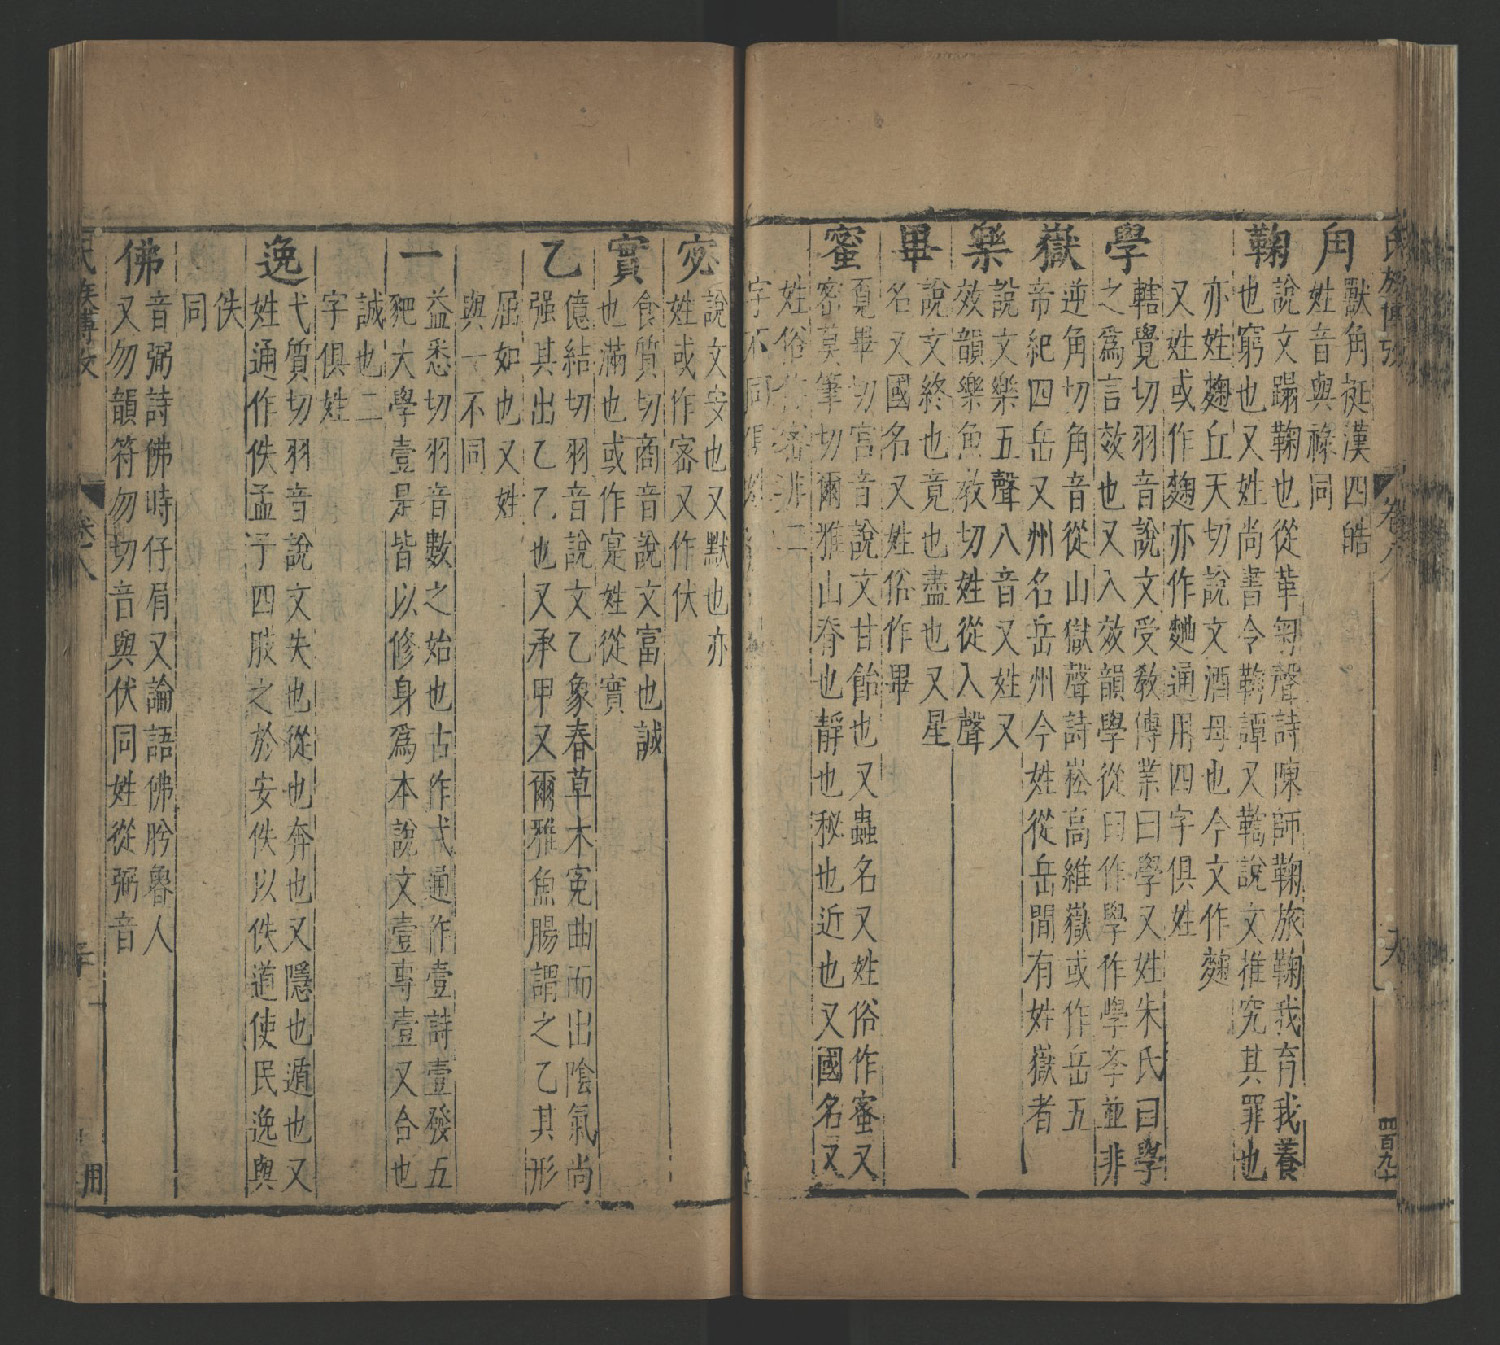 角
獸角挻漢四皓
姓音與祿同
鞠
說文蹋鞠也從革匊聲詩陳師鞠旅鞠我育我養
也窮也又姓尚書令鞫譚又鞫說文推究其罪也
亦姓麴丘天切說文酒母也今文作麴
又姓或作麴亦作麯通用四字俱姓
學
轄覺切羽音說文受教傳業曰學又姓朱氏曰學
之爲言效也又入效韻學從臼作學作斈並非
嶽
逆角切角音從山獄聲詩崧高維嶽或作岳五
帝紀四岳又州名岳州今姓從岳間有姓嶽者
樂
說文樂五聲八音又姓又
效韻樂魚敎切姓從入聲
畢
說文終也竟也盡也又星
名又國名又姓俗作畢
蜜
覓畢切宮音說文甘飴也又蟲名又姓俗作蜜又
密莫筆切爾雅山脊也靜也秘也近也又國名又
姓俗作密非二
字不同俱姓
宓
說文安也又默也亦
姓或作審又作伏
實
食質切商音說文富也誠
也滿也或作寔姓從實
乙
億結切羽音說文乙象春草木冤曲而出陰氣尚
强其出乙乙也又承甲又爾雅魚腸謂之乙其形
屈如也又姓
與一不同
一
益悉切羽音數之始也古作弌通作壹詩壹發五
豝大學壹是皆以修身爲本說文壹專壹又合也
誠也二
字俱姓
逸
弋質切羽音說文失也從也奔也又隱也遁也又
姓通作佚孟子四肢之於安佚以佚道使民逸與
佚
同
佛
音弼詩佛時仔肩又論語佛肸魯人
又勿韻符勿切音與伏同姓從弼音
卷六